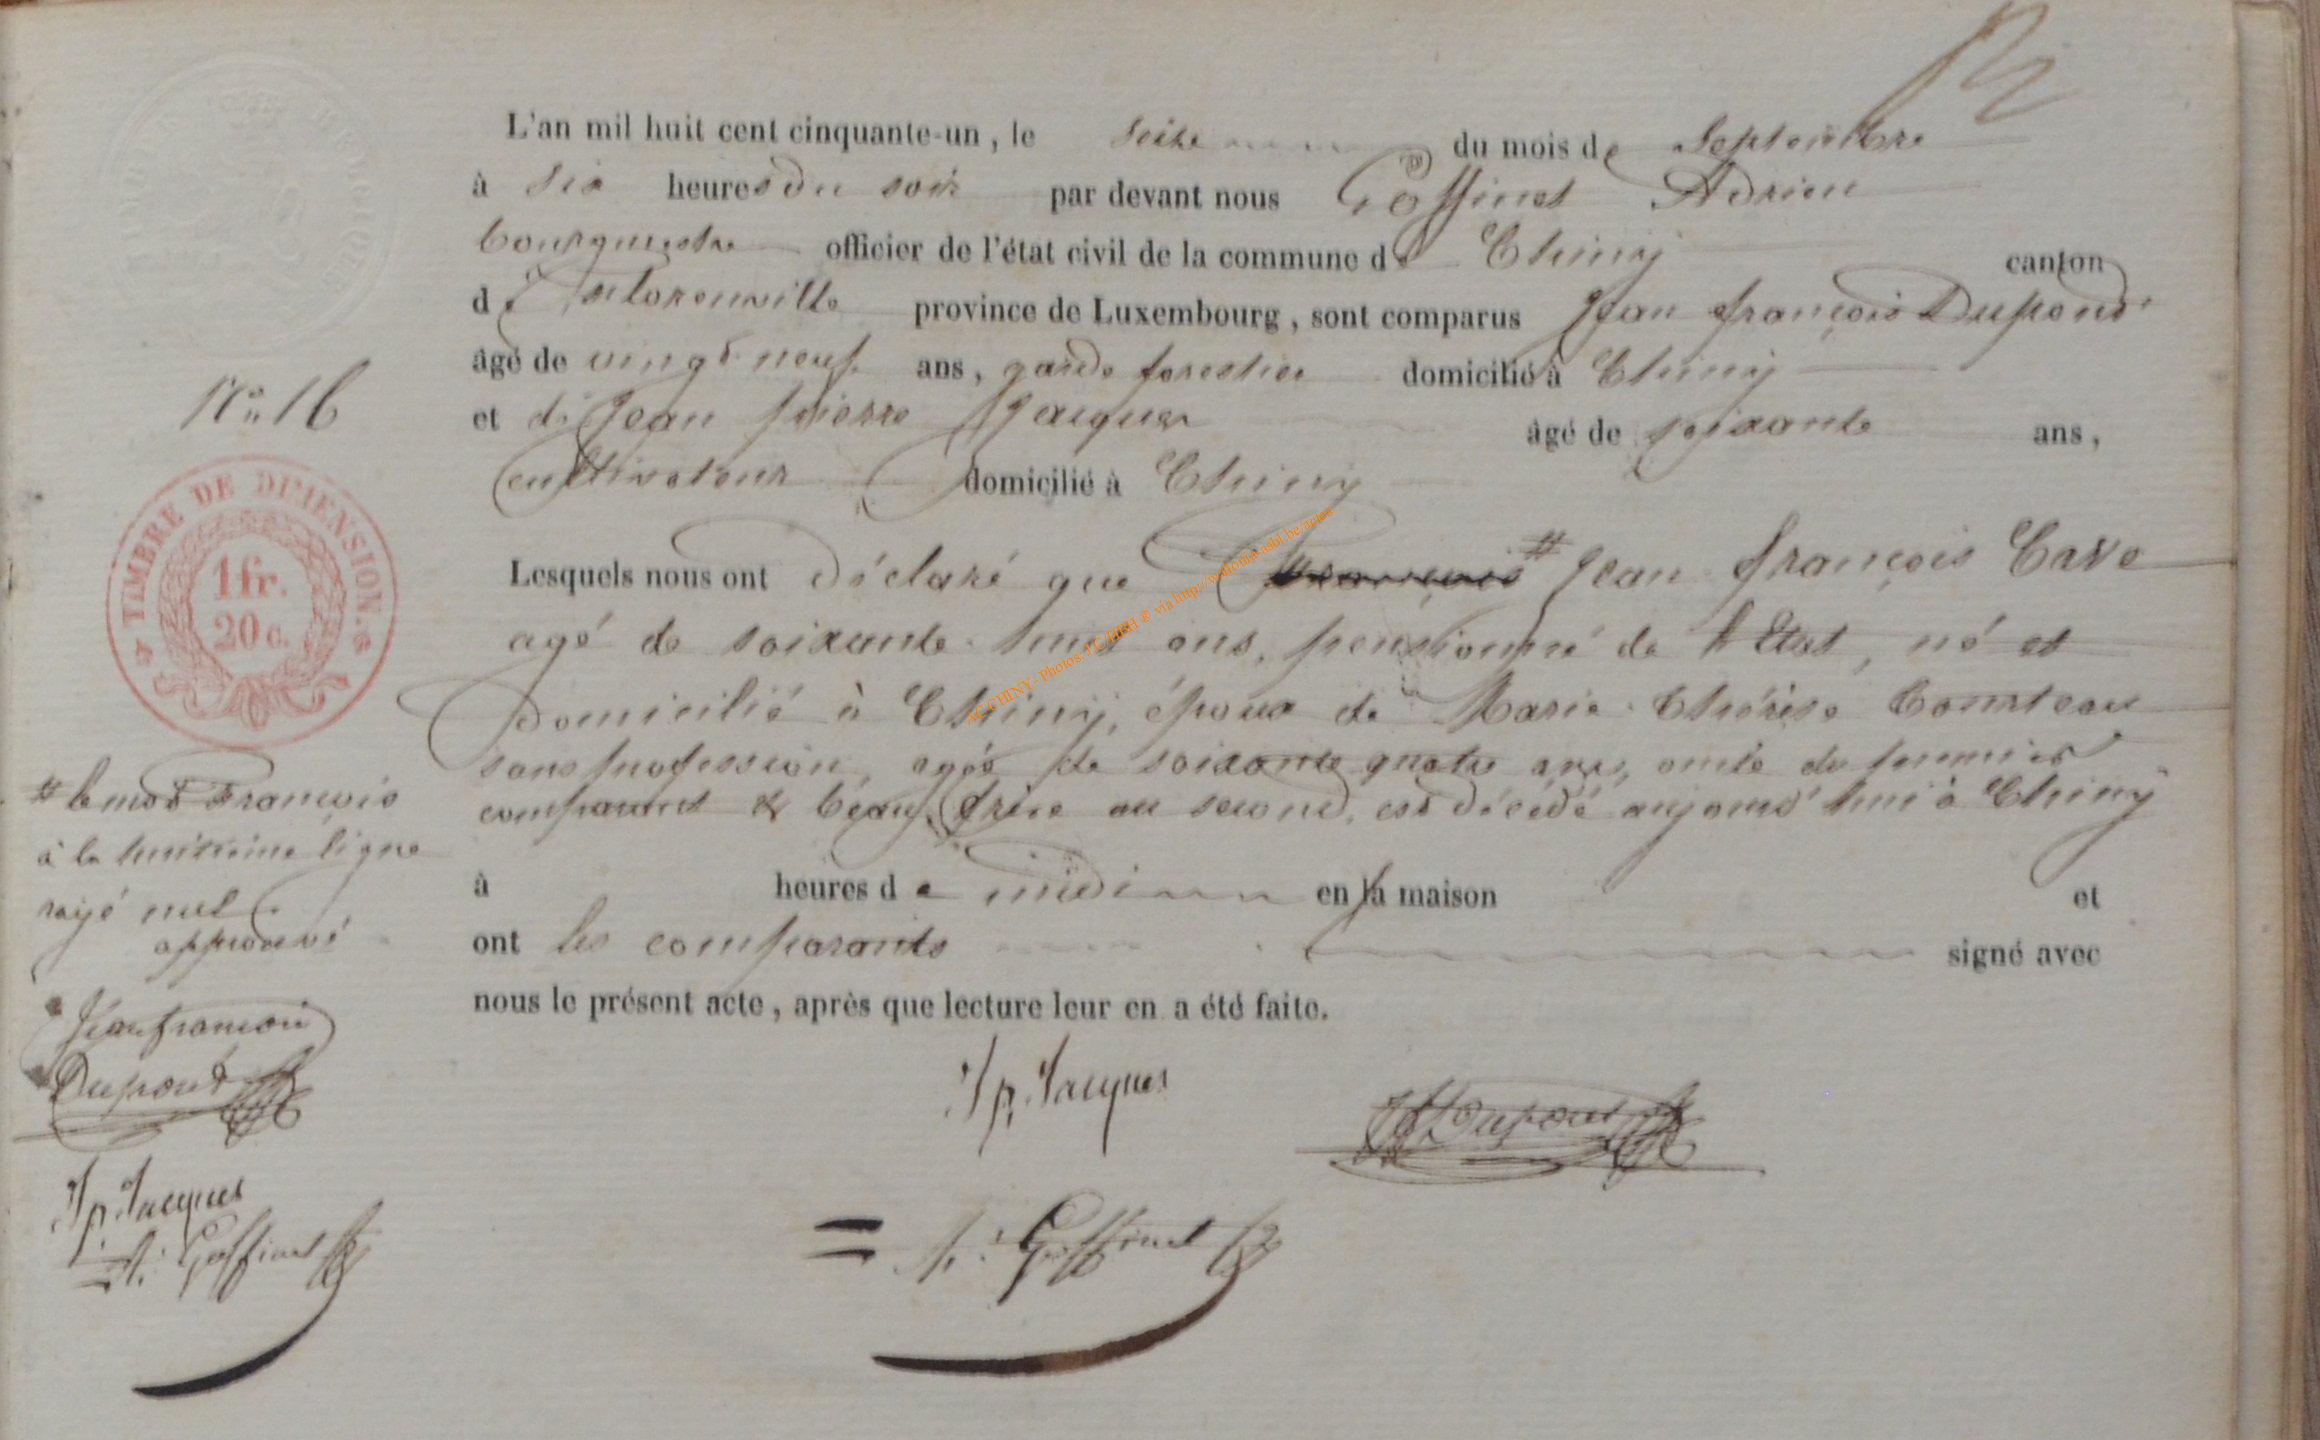 L'an mil huit cent cinquante-un, le seize du mois de Septembre
à six heures du soir par devant nous Goffinet Adrien
bourgmestre officier de l'état civil de la commune de Chiny canton
de Florenville province de Luxembourg, sont comparus Jean françois Dupond
âgé de vingt neuf ans, garde forestier domicilié à Chiny
et de Jean pierre Jacques âgé de soixante ans,
cultivateur domicilié à Chiny
Lesquels nous ont déclaré que François # Jean françois
agé de soixante huit ans, pensionné de l'Etat, né et
domicilié à Chiny, époux de Marie Thérèse
sans profession, agée de soixante quatre ans, du premier
comparant & beau frère au second, est décédé aujourd'hui à Chiny
à heures de midi en sa maison et
ont les comparants signé avec
nous le présent acte, après que lecture leur en a été faite.
Jp. Jacques
Dupond
A. Goffinet
N° 16
TIMBRE DE DIMENSION.
1 fr.
20 c.
# le mot François
à la huitième ligne
rayé nul
approuvé
Jean françois
Dupond
Jp. Jacques
A. Goffinet